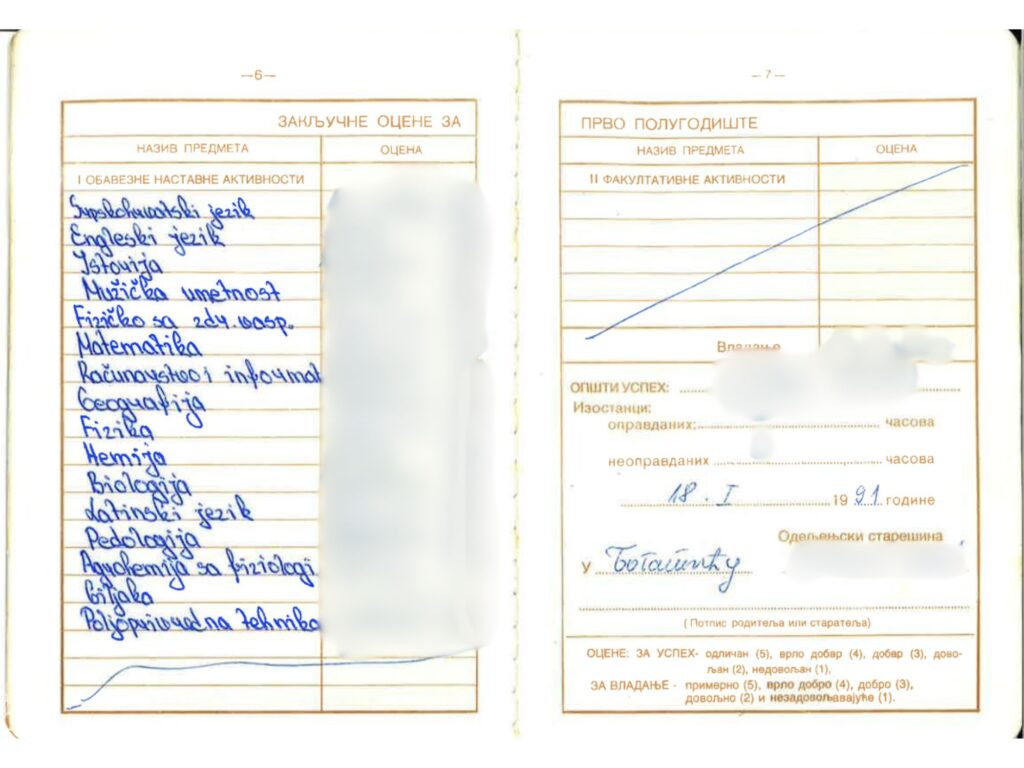 —6—
ЗАКЉУЧНЕ ОЦЕНЕ ЗА
НАЗИВ ПРЕДМЕТА ОЦЕНА
I ОБАВЕЗНЕ НАСТАВНЕ АКТИВНОСТИ
Srpskohrvatski jezik
Engleski jezik
Istorija
Mužička umetnost
Fizičko sa zdr. vasp.
Matematika
Računarstvo i informat
Geografija
Fizika
Hemija
Biologija
Latinski jezik
Pedologija
Agrohemija sa fiziologi
biljaka
Poljoprivredna tehnika
—7—
ПРВО ПОЛУГОДИШТЕ
НАЗИВ ПРЕДМЕТА ОЦЕНА
II ФАКУЛТАТИВНЕ АКТИВНОСТИ
Владање
ОПШТИ УСПЕХ:
Изостанци:
оправданих: часова
неоправданих часова
18. I 1991 године
Одељењски старешина
У Богатићу
(Потпис родитеља или старатеља)
ОЦЕНЕ: ЗА УСПЕХ- одличан (5), врло добар (4), добар (3), дово-
љан (2), недовољан (1).
ЗА ВЛАДАЊЕ - примерно (5), врло добро (4), добро (3),
довољно (2) и незадовољавајуће (1).